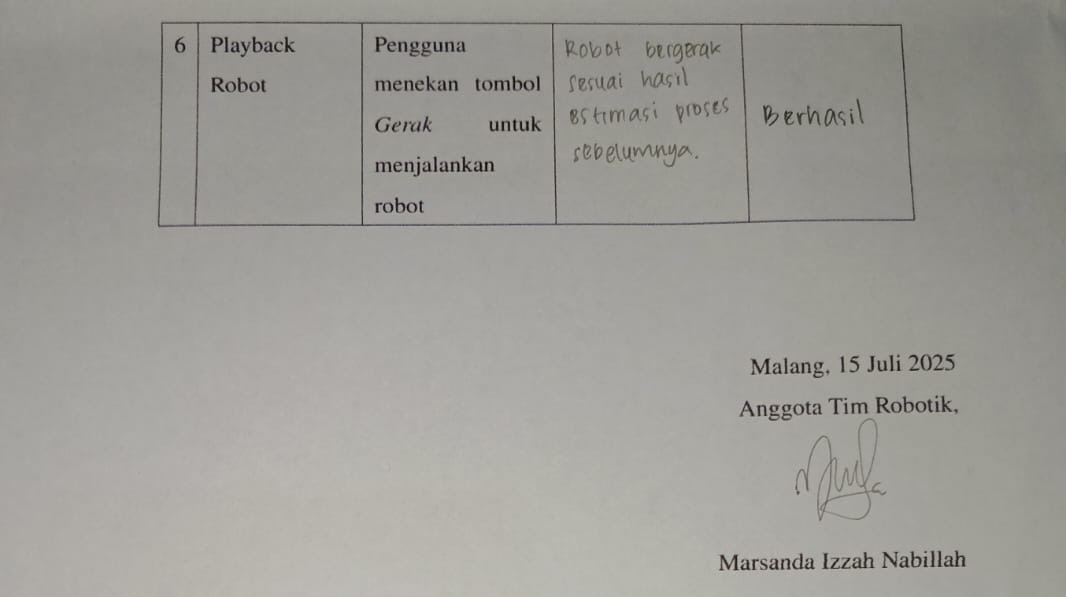 6
Playback
Robot
Pengguna
menekan tombol
Gerak untuk
menjalankan
robot
Robot bergerak
sesuai hasil
estimasi proses
sebelumnya.
Berhasil
Malang, 15 Juli 2025
Anggota Tim Robotik,
Marsanda Izzah Nabillah